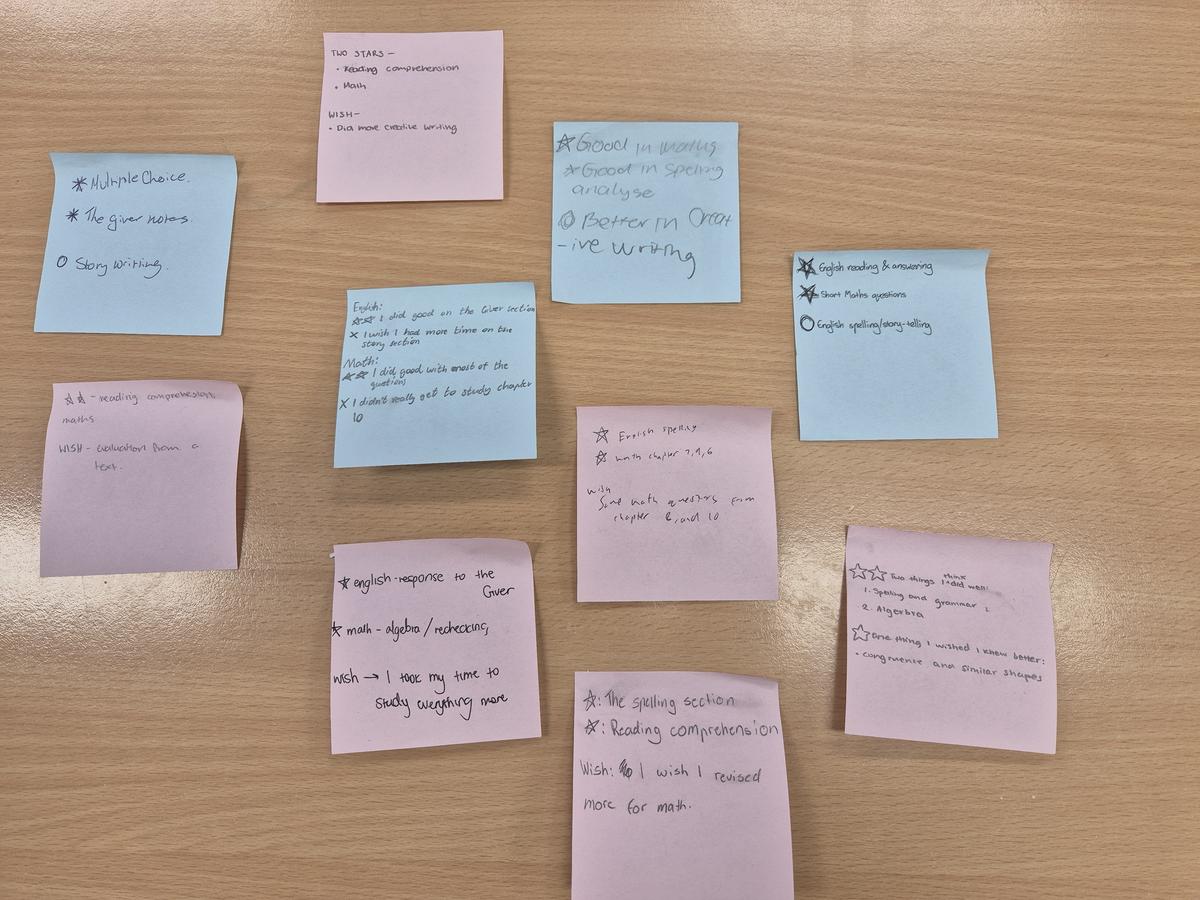 TWO STARS -
• Reading comprehension
• Math
WISH -
• Did more creative writing
* Multiple Choice.
* The giver notes.
O Story writing.
☆ Good in maths
☆ Good in spelling
analyse
O Better in Creat
-ive writing
☆ English reading & answering
☆ Short Maths questions
O English spelling/story-telling
English:
☆☆ I did good on the Giver section
X I wish I had more time on the
story section
Math:
☆☆ I did good with most of the
questions
X I didn't really get to study chapter
10
☆☆ - reading comprehension,
maths
WISH - evaluation from a
text.
☆ English spelling
☆ math chapter 7, 9, 6
wish
Some math questions from
chapter 8, and 10
☆ english - response to the
Giver
☆ math - algebra / rechecking
wish → I took my time to
study everything more
☆☆ Two things I think did well:
1. Spelling and grammar
2. Algerbra
☆ One thing I wished I knew better:
• congruence and similar shapes
☆: The spelling section
☆: Reading comprehension
Wish: I wish I revised
more for math.